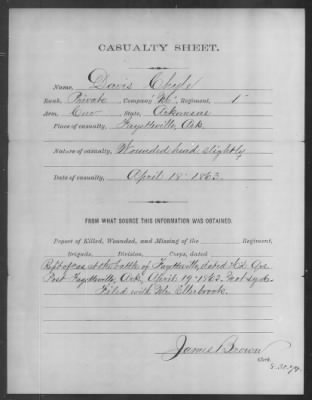 CASUALTY SHEET.
Name, Davis
Rank, Private Company "M", Regiment, 1"
Arm, Cav State, Arkansas
Place of casualty, Fayetteville, Ark.
Nature of casualty, Wounded head slightly
Date of casualty, April 18 - 1863.
FROM WHAT SOURCE THIS INFORMATION WAS OBTAINED.
Report of Killed, Wounded, and Missing of the Regiment,
Brigade, Division, Corps, dated
Rept of cas at the battle of Fayetteville, dated Hd. Qrs
Post Fayetteville, Ark, April 19 - 1863.
Filed with
James Brown
Clerk.